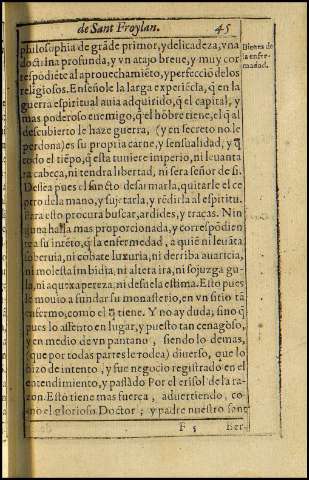 de Sant Froylan. 45
philosophia de grãde primor, y delicadeza, vna
doctrina profunda, y vn atajo breue, y muy cor
respõdiẽte al aprouechamiẽto, y perfecciõ de los
religiosos. Enseñole la larga experiẽcia, q̃ en la
guerra espiritual auia adquirido, q̃ el capital, y
mas poderoso enemigo, q̃ el hõbre tiene, el q̃ al
descubierto le haze guerra, (y en secreto no le
perdona) es su propria carne, y sensualidad, y q̃
todo el tiẽpo, q̃ esta tuuiere imperio, ni leuanta
ra cabeça, ni tendra libertad, ni sera señor de si.
Dessea pues el sancto desarmarla, quitarle el ce
ptro de la mano, y sujetarla, y rẽdirla al espiritu.
Para esto procura buscar, ardides, y traças. Nin
guna halla mas proporcionada, y correspõdien
te a su intẽto, q̃ la enfermedad, a quiẽ ni leuãta
soberuia, ni cõbate luxuria, ni derriba auaricia,
ni molesta imbidia, ni altera ira, ni sojuzga gu-
la, ni aquexa pereza, ni desuela estima. Esto pues
le mouio a fundar su monasterio, en vn sitio tã
enfermo, como el q̃ tiene. Y no ay duda, sino q̃
pues lo assento en lugar, y puesto tan cenagoso,
y en medio de vn pantano, siendo lo demas,
(que por todas partes le rodea) diuerso, que lo
hizo de intento, y fue negocio registrado en el
entendimiento, y passado Por el crisol de la ra-
zon. Esto tiene mas fuerça, aduertiendo, co-
mo el glorioso Doctor, y padre nuestro sant
F 5 Ber-
Bienes de
la enfer-
medad.